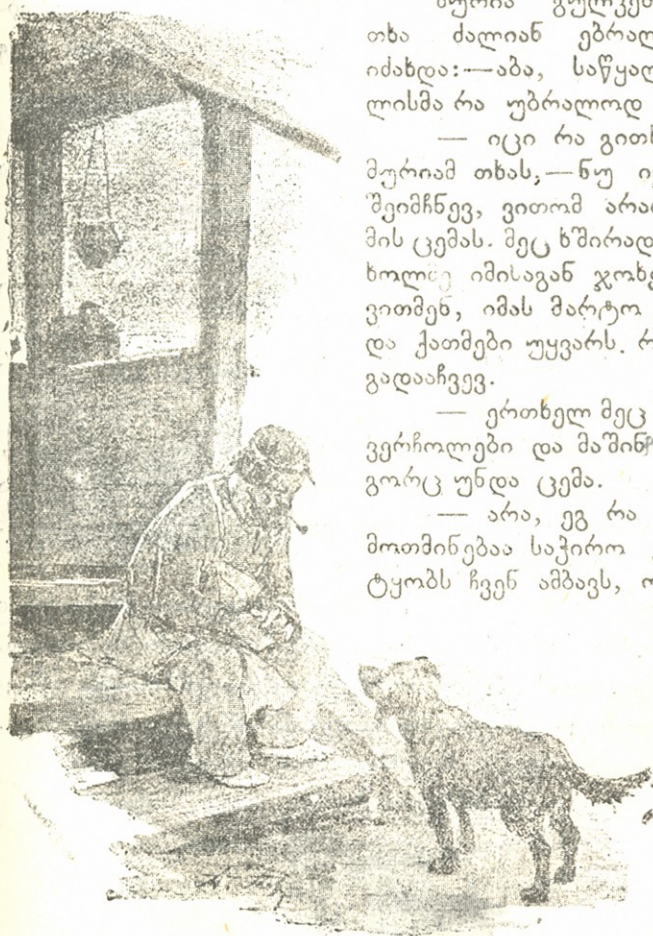 მურია გულკე
თხა ძალიან ებრალ
იძახდა:—აბა, საწყალ
ლისმა რა უბრალოდ
— იცი რა გითხ
მურიამ თხას,—ნუ ი
შეიმჩნევ, ვითომ არა
მის ცემას. მეც ხშირად
ხოლმე იმისაგან ჯოხე
ვითმენ, იმას მარტო
და ქათმები უყვარს. რ
გადააჩვევ.
— ერთხელ მეც
ვერჩოლები და მაშინ
გორც უნდა ცემა.
— არა, ეგ რა
მოთმინებაა საჭირო
ტყობს ჩვენ ამბავს, ო